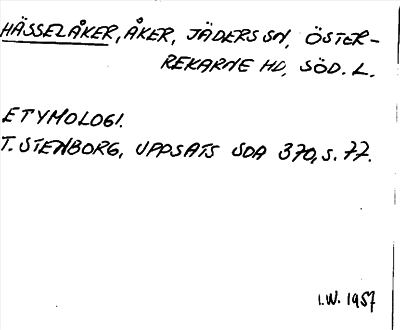 HÄSSELÅKER, ÅKER, JÄDERS SN, ÖSTER-
REKARNE HD, SÖD. L.
ETYMOLOGI.
T. STENBORG, UPPSATS SOA 370, S. 77.
I.W. 1957